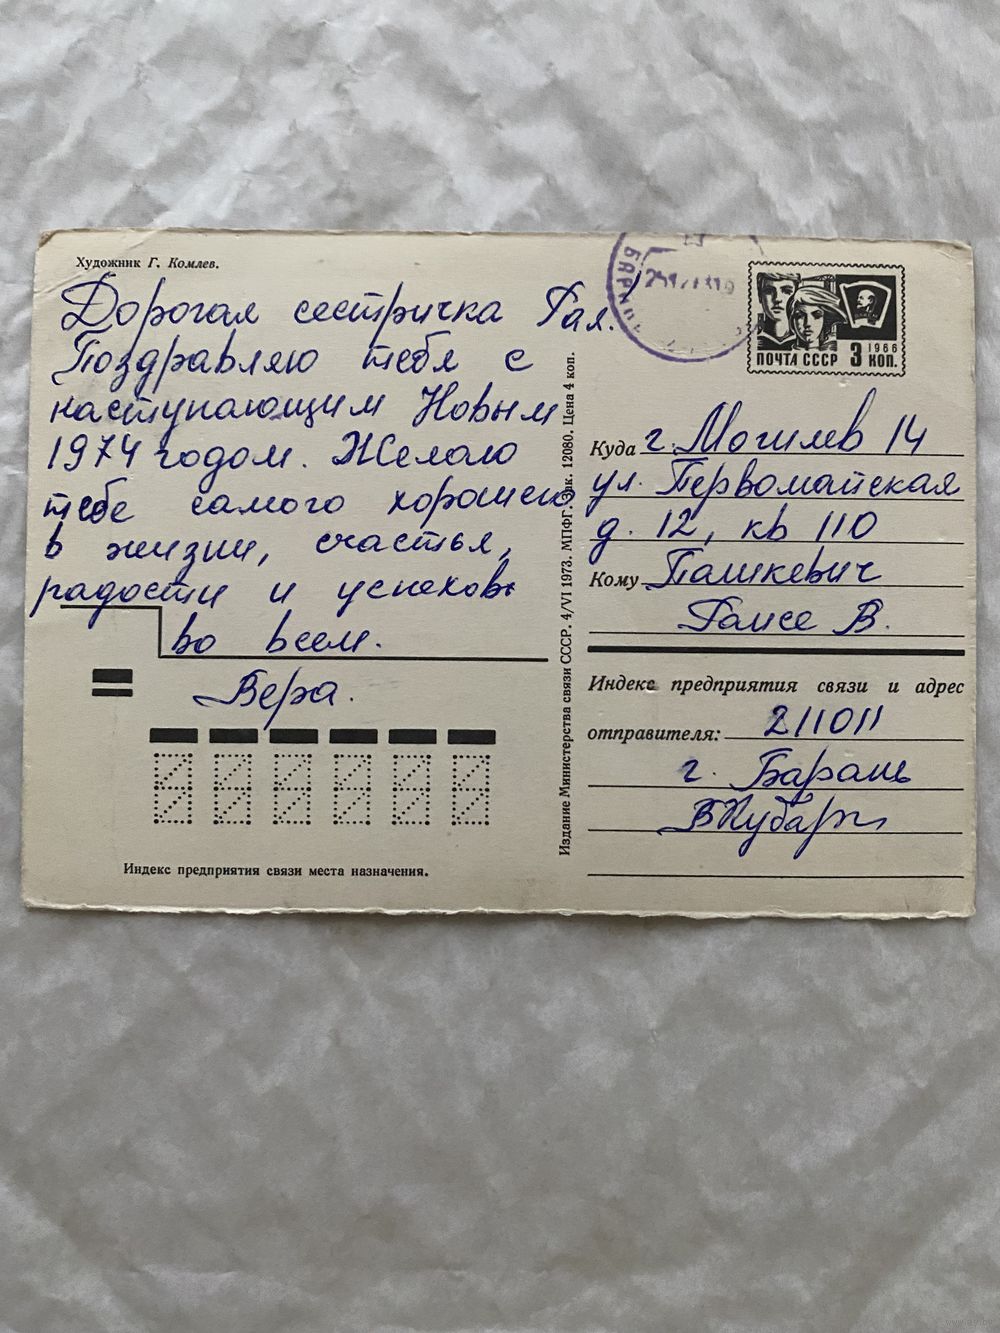 Художник Г. Комлев.
Дорогая сестричка Рая!
Поздравляю тебя с
наступающим Новым
1974 годом. Желаю
тебе самого хорошего
в жизни, счастья,
радости и успехов
во всем.
Вера.
Индекс предприятия связи места назначения.
Издание Министерства связи СССР. 4/VI 1973. МПФГ. Зак. 12080. Цена 4 коп.
ПОЧТА СССР 3 КОП.
1966
Куда г. Могилев 14
ул. Первомайская
д. 12, кв 110
Кому Пашкевич
Раисе В.
Индекс предприятия связи и адрес
отправителя: 211011
г. Барань